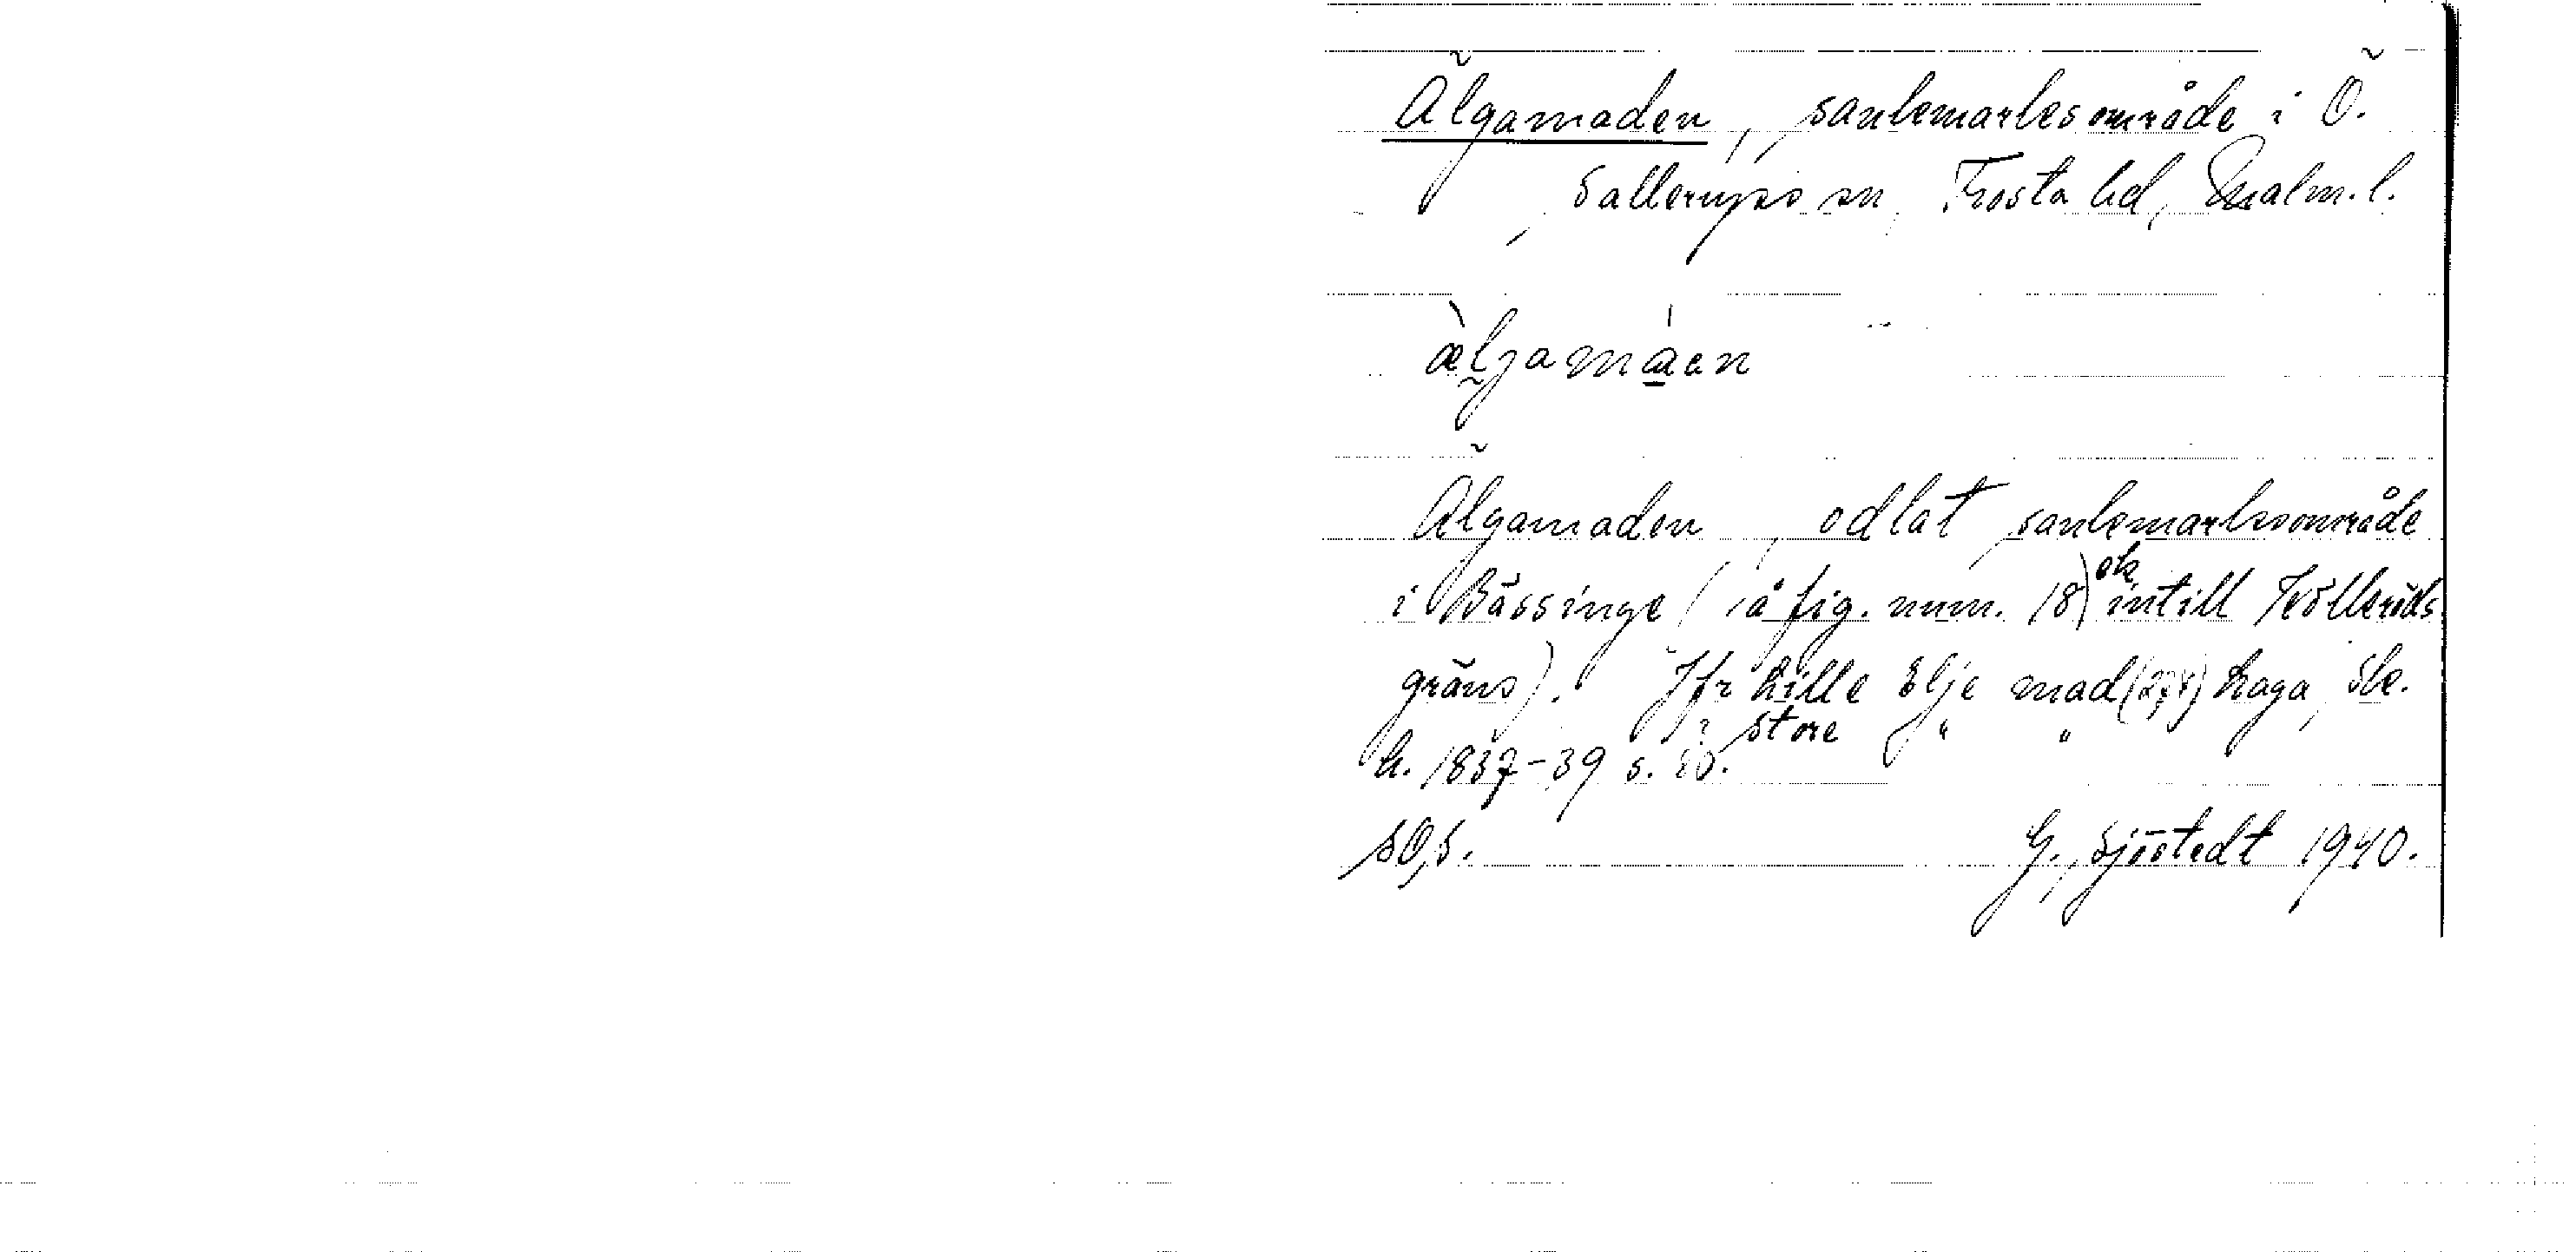 Älgamaden, sankmarksområde i Ö.
Sallerups sn, Frosta hd, Malm. l.
æ̀ljamáen
Älgamaden, odlat sankmarksområde
i Bässinge (å fig. num. 18) ok intill Kölleröds
gräns). Jfr Lille Elje mad (274) haga, sk.
Store " "
h. 1837-39 s. 80.
SOS. G. Sjöstedt 1940.